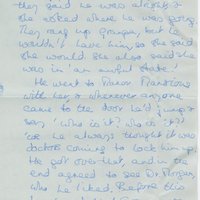 they said he was alright &
she asked where he was going.
They rang up grouper, but he
wouldn't have him so she said
she would. She also said she
was in 'an awful state'!
He went to Manor Mansions
with her & whenever anyone
came to the door he'd jump &
say 'who is it? who is it?'
'cos he always thought it was
doctors coming to lock him up.
He got over that, and in the
end agreed to see Dr
who he liked. Before this